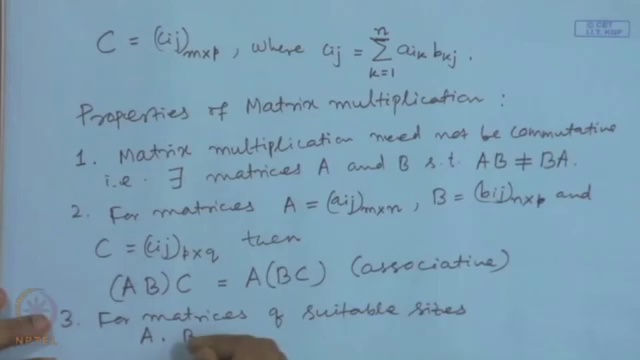 © CET
I.I.T. KGP
C = (cij)m×p, where cij = n∑k=1 aik bkj.
Properties of Matrix multiplication :
1. Matrix multiplication need not be commutative
i.e. ∃ matrices A and B s.t. AB ≠ BA.
2. For matrices A = (aij)m×n, B = (bij)n×p and
C = (cij)p×q then
(AB)C = A(BC) (associative)
3. For matrices of suitable sizes
A, B
NPTEL